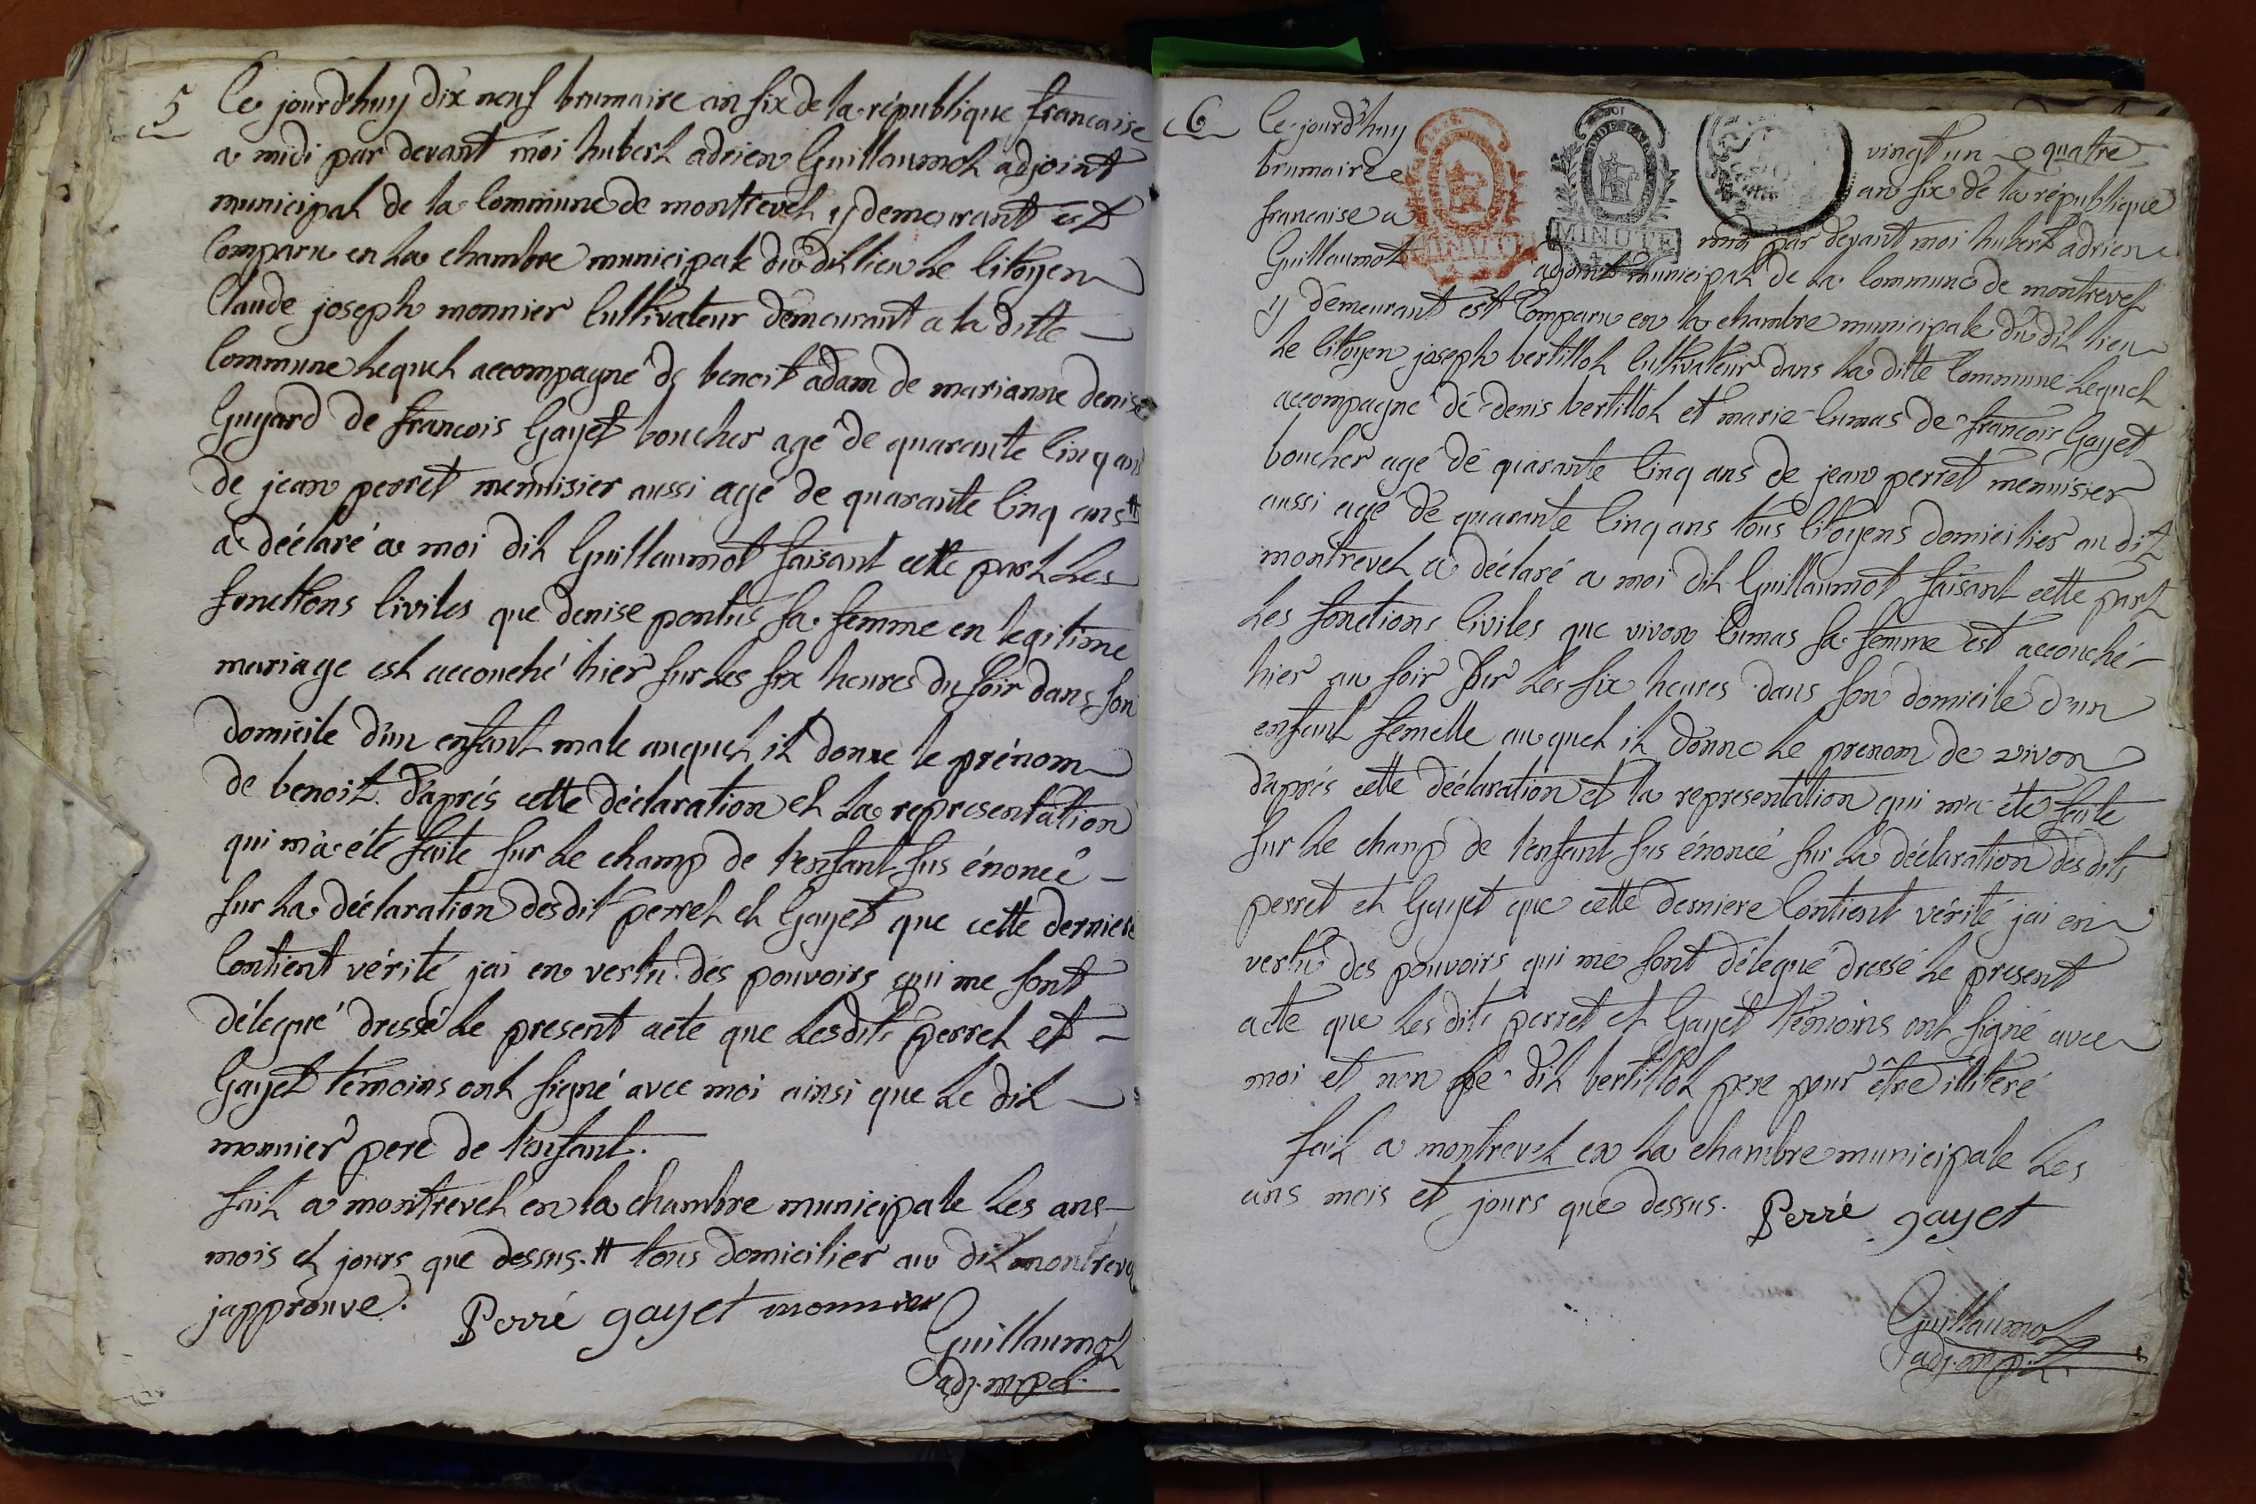 5
Ce jourdhuy dix neuf brumaire an six de la république francaise
a midi par devant moi hubert adrien Guillaumot adjoint
municipal de la Commune de montrevel y demeurant est
Comparu en la chambre municipale du dit lieu le Citoyen
Claude joseph monnier Cultivateur demeurant a la ditte
Commune lequel accompagné de benoit adam de marianne denise
Guyard de francois Gayet boucher agé de quarante Cinq ans
de jean perret mennisier aussi agé de quarante Cinq ans #
a déclaré a moi dit Guillaumot faisant cette part les
fonctions Civiles que denise pontus sa femme en legitime
mariage est accouché hier sur les six heures du soir dans son
domicile d'un enfant male auquel il donne le prénom
de benoit. d'aprés cette déclaration et la representation
qui m'a été faite sur le champ de l'enfant sus énoncé
sur la déclaration desdit perret et Gayet que cette derniere
Contient vérité jai en vertu des pouvoirs qui me sont
délegué dressé le present acte que lesdits perret et
Gayet témoins ont signé avec moi ainsi que le dit
monnier pere de l'enfant.
fait a montrevel en la chambre municipale les ans
mois et jours que dessus. # tous domicilier au dit montrevel
japprouve.
Perré gayet monnier
Guillaumot
adj. mpal.
6
Ce jourd'huy vingt un quatre
brumaire an six de la république
francaise a midi par devant moi hubert adrien
MINUTE
Guillaumot adjoint municipal de la Commune de montrevel
y demeurant est Comparu en la chambre municipale du dit lieu
le Citoyen joseph bertillot Cultivateur dans la ditte Commune lequel
accompagné de denis bertillot et marie Cumas de francois Gayet
boucher agé de quarante Cinq ans de jean perret mennisier
aussi agé de quarante Cinq ans tous Citoyens domicilier au dit
montrevel a déclaré a moi dit Guillaumot faisant cette part
les fonctions Civiles que vivon Cumas sa femme est accouché
hier au soir sur les six heures dans son domicile d'un
enfant femelle auquel il donne le prenom de vivon
d'aprés cette déclaration et la representation qui m'a été faite
sur le champ de l'enfant sus énoncé sur la déclaration desdits
perret et Gayet que cette derniere Contient vérité jai en
vertu des pouvoirs qui me sont délegué dressé le present
acte que les dits perret et Gayet témoins ont signé avec
moi et non le dit bertillot pere pour être illiteré
fait a montrevel en la chambre municipale les
ans mois et jours que dessus. Perré gayet
Guillaumot
adj. mpal.